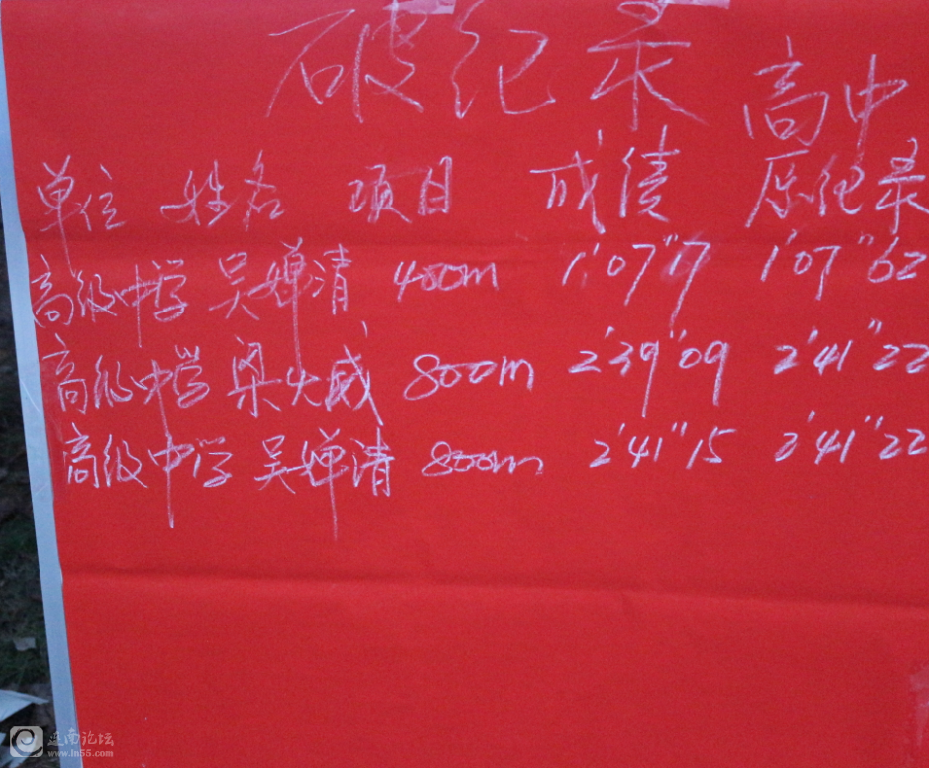 破纪录
高中
单位 姓名 项目 成绩 原纪录
高级中学 吴婵清 400m 1'07"17 1'07"62
高级中学 梁大威 800m 2'39"09 2'41"22
高级中学 吴婵清 800m 2'41"15 2'41"22
连南论坛
www.ln55.com